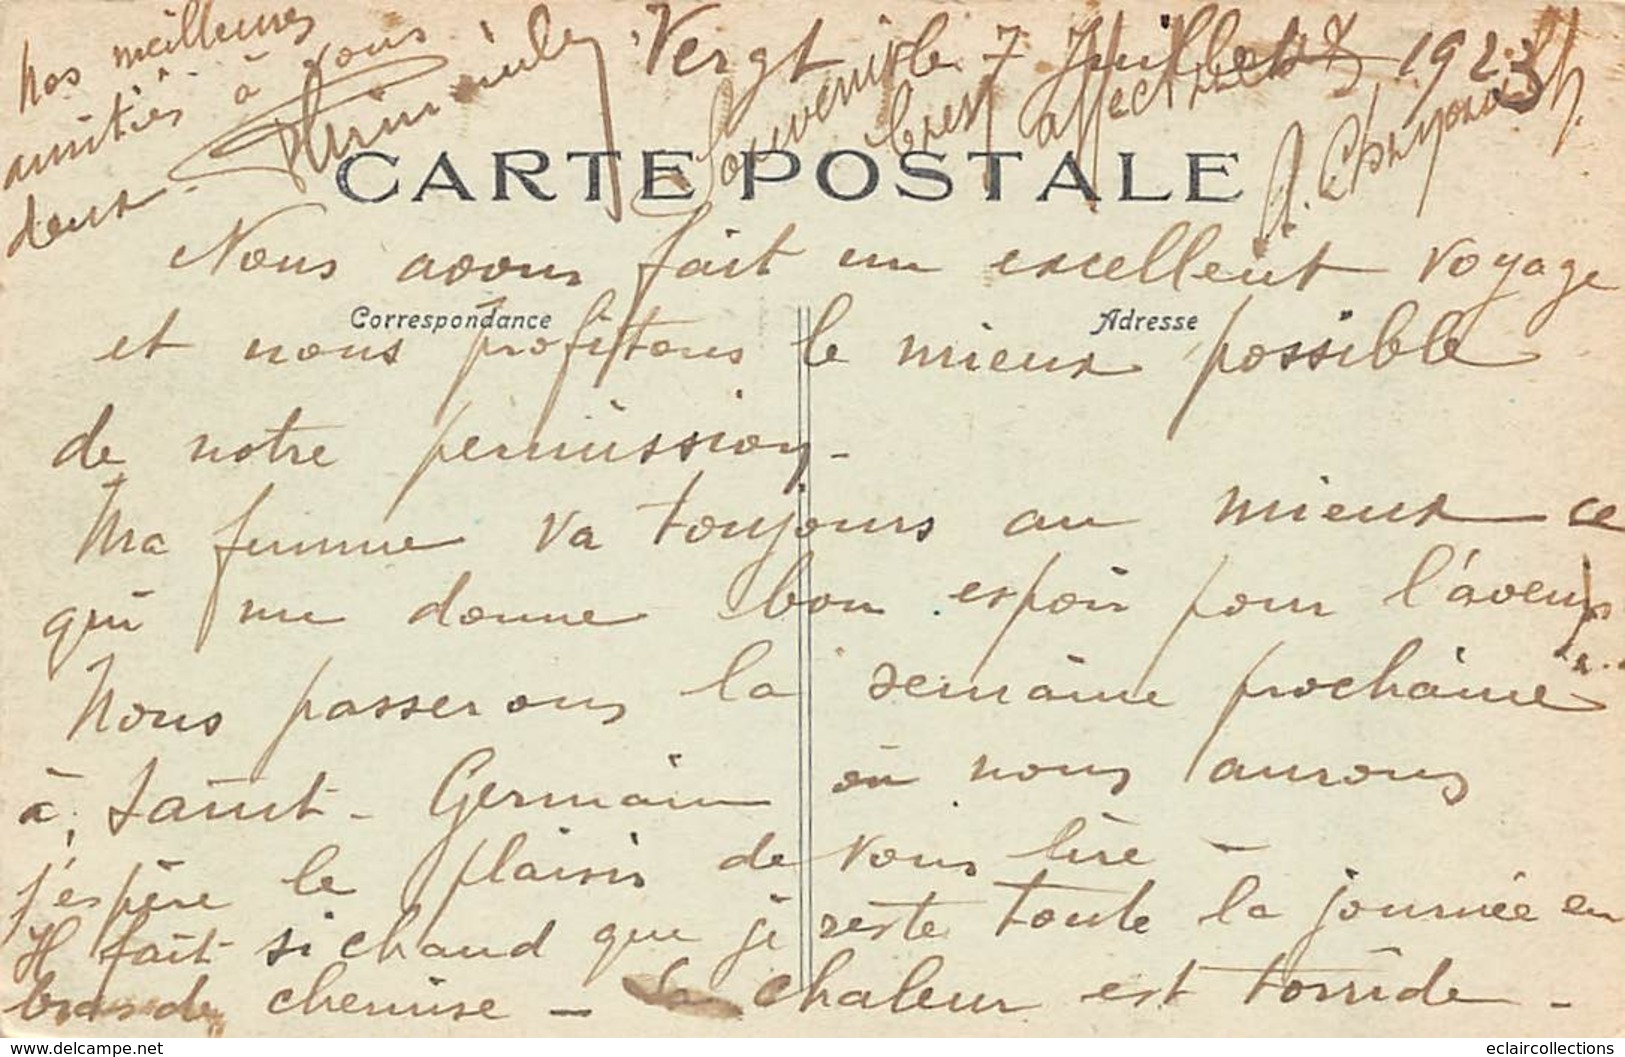 Vergt, le 7 Juillet 1923
Nos meilleures
amitiés à vous
deux -
Souvenirs
très affectueux
CARTE POSTALE
Nous avons fait un excellent voyage
Correspondance
Adresse
et nous profitons le mieux possible
de notre permission -
Ma femme va toujours au mieux ce
qui me donne bon espoir pour l'avenir
Nous passerons la semaine prochaine
à Saint-Germain où nous aurons
j'espère le plaisir de vous lire -
Il fait si chaud que je reste toute la journée en
bras de chemise - La chaleur est torride -
delcampe.net
eclaircollections